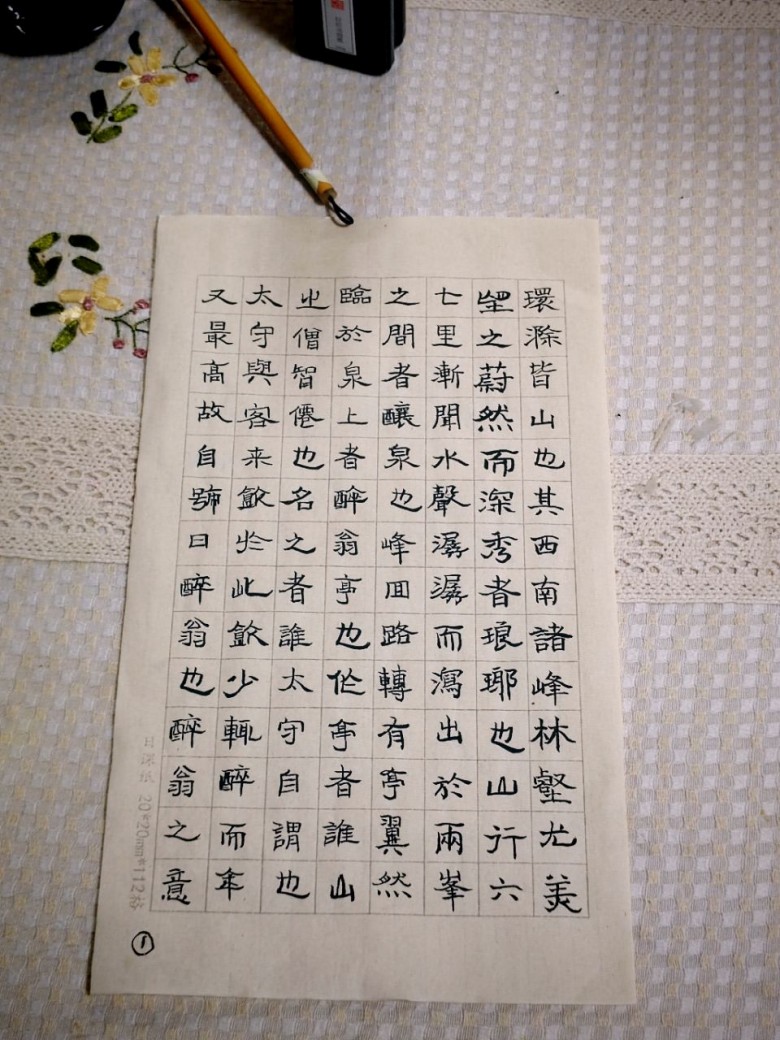 環滁皆山也其西南諸峰林壑尤美
望之蔚然而深秀者琅瑯也山行六
七里漸聞水聲潺潺而瀉出於兩峯
之間者釀泉也峰回路轉有亭翼然
臨於泉上者醉翁亭也作亭者誰山
之僧智僊也名之者誰太守自謂也
太守與客来飲於此飲少輒醉而年
又最高故自號曰醉翁也醉翁之意
20*20mm*112格
1